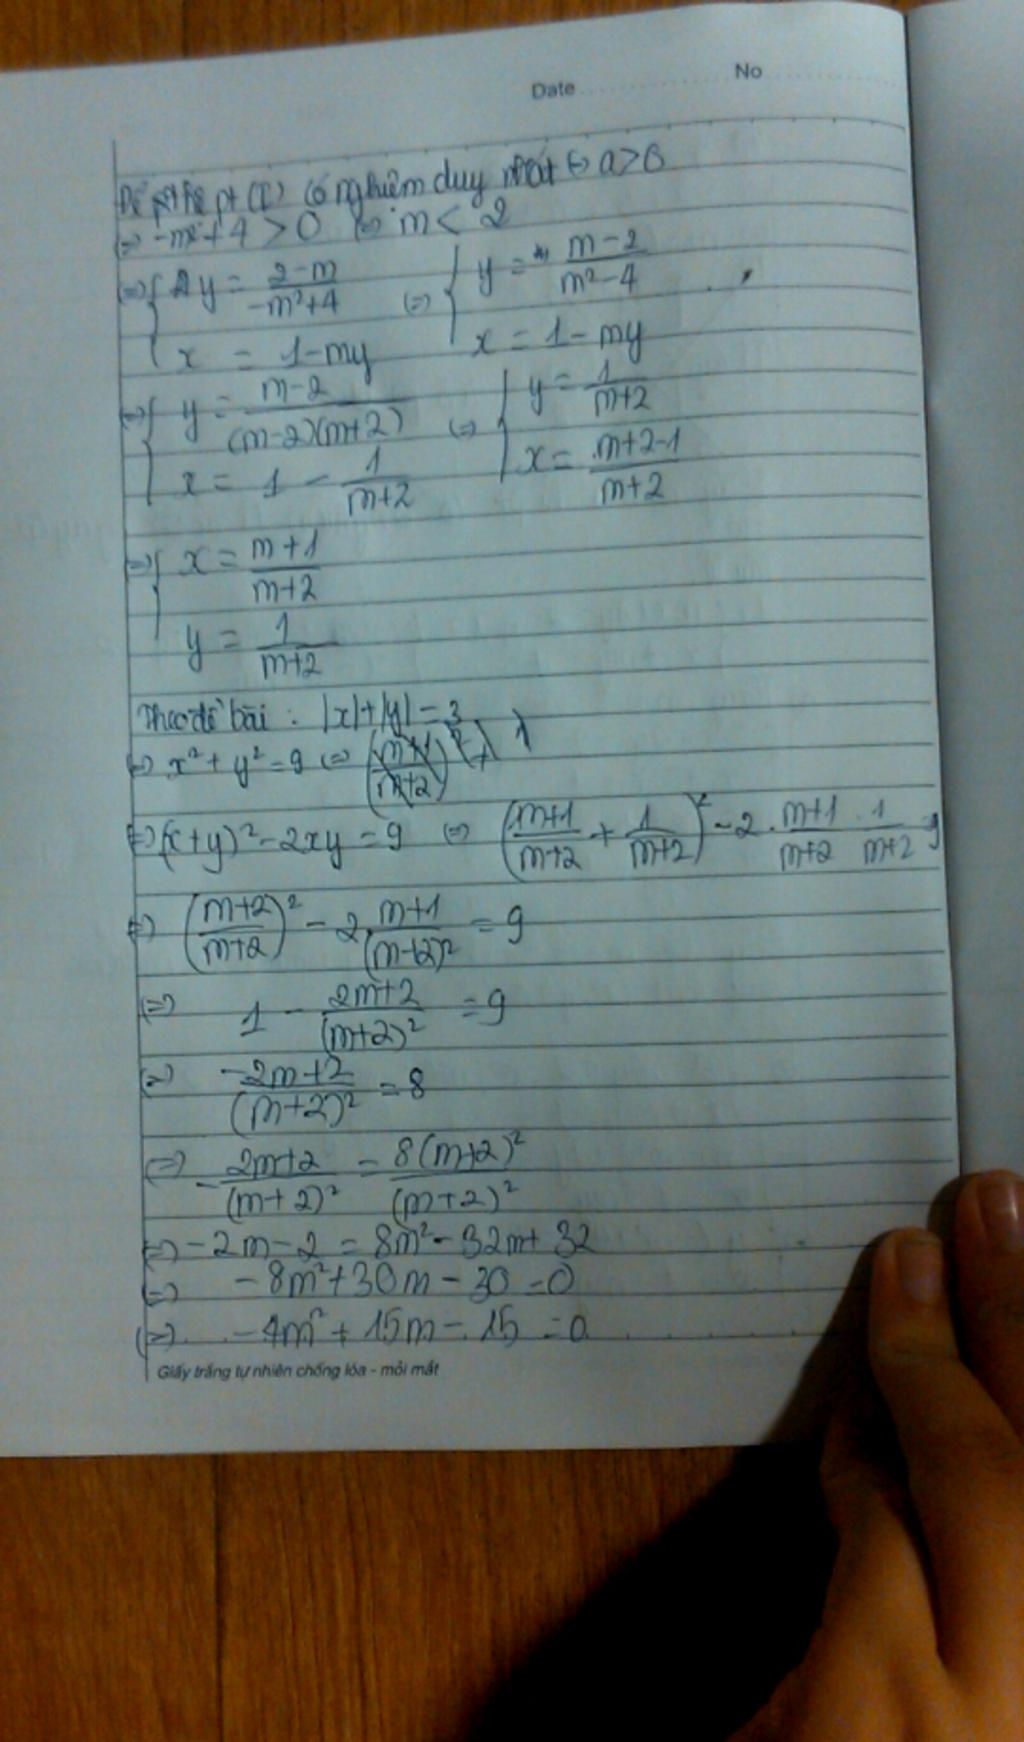 Date No
Để hệ pt (I) có nghiệm duy nhất (=) a > 0
(=) -m² + 4 > 0 (=) m < 2
(=) { y = (2-m)/(-m²+4) (=) { y = (m-2)/(m²-4)
x = 1-my x = 1-my
(=) { y = (m-2)/((m-2)(m+2)) (=) { y = 1/(m+2)
x = 1 - 1/(m+2) x = (m+2-1)/(m+2)
(=) { x = (m+1)/(m+2)
y = 1/(m+2)
Theo đề bài : |x|+|y| = 3
(=) x² + y² = 9 (=)
(=) (x+y)² - 2xy = 9 (=) ((m+1)/(m+2) + 1/(m+2))² - 2. (m+1)/(m+2) . 1/(m+2) = 9
(=) ((m+2)/(m+2))² - 2. (m+1)/(m+2)² = 9
(=) 1 - (2m+2)/(m+2)² = 9
(=) -(2m+2)/(m+2)² = 8
(=) -(2m+2)/(m+2)² = 8(m+2)²/(m+2)²
(=) -2m-2 = 8m² - 32m + 32
(=) -8m² + 30m - 30 = 0
(=) -4m² + 15m - 15 = 0
Giấy trắng tự nhiên chống lóa - mỏi mắt